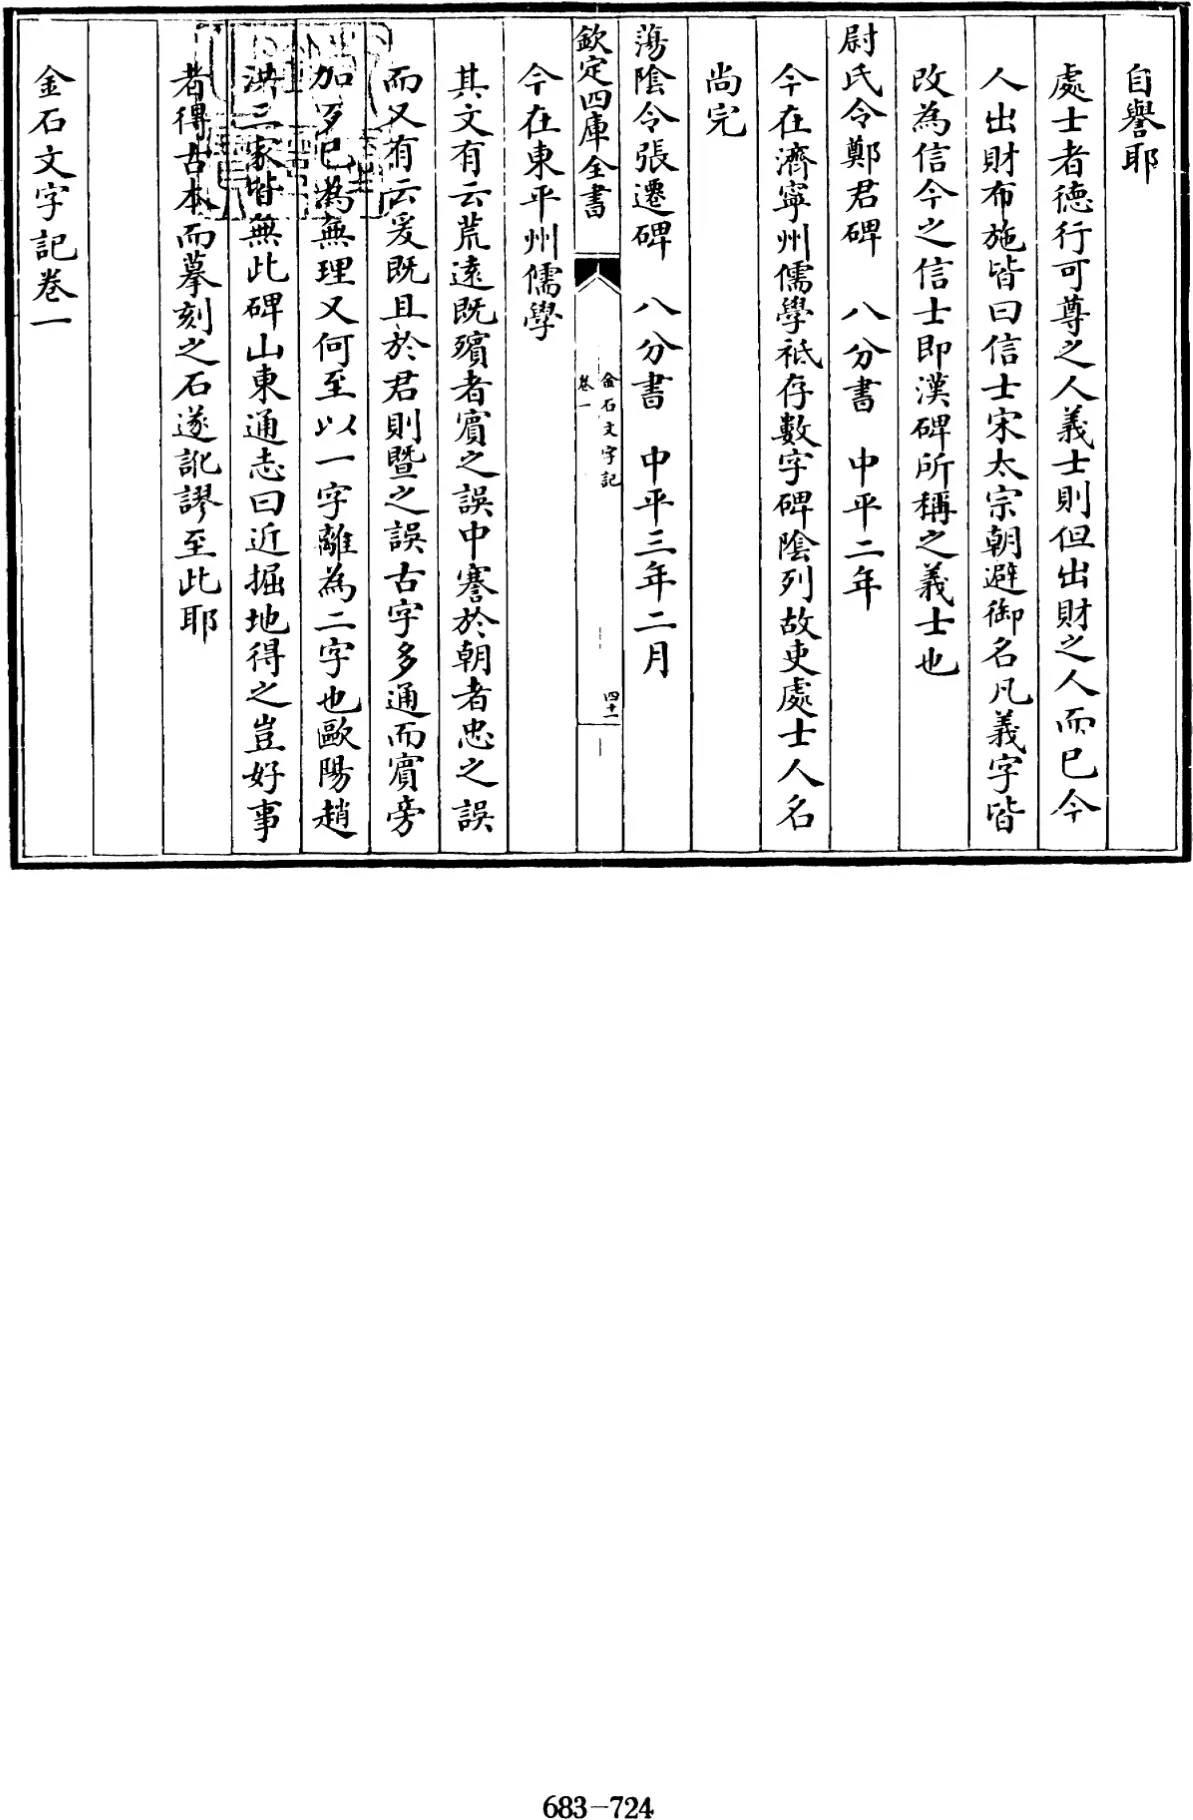 自譽耶
處士者德行可尊之人義士則但出財之人而已今
人出財布施皆曰信士宋太宗朝避御名凡義字皆
改為信今之信士即漢碑所稱之義士也
尉氏令鄭君碑 八分書 中平二年
今在濟寧州儒學祗存數字碑陰列故吏處士人名
尚完
蕩陰令張遷碑 八分書 中平三年二月
欽定四庫全書
金石文字記
卷一
四十一
今在東平州儒學
其文有云荒遠既殯者賓之誤中謇於朝者忠之誤
而又有云爰既且於君則暨之誤古字多通而賓旁
加歹已為無理又何至以一字離為二字也歐陽趙
洪三家皆無此碑山東通志曰近掘地得之豈好事
者得古本而摹刻之石遂訛謬至此耶
金石文字記卷一
683-724